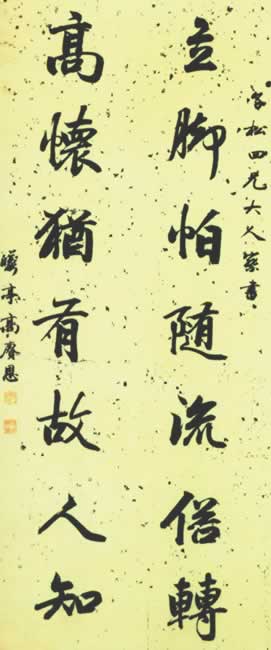 松四兄大人
立脚怕随流俗轉
高懷猶有故人知
曦亭高賡恩